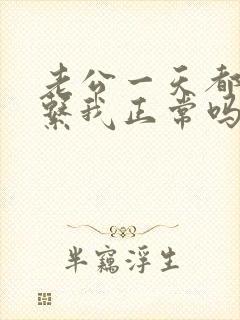 老公一天都
系我正常吗
半窥浮生